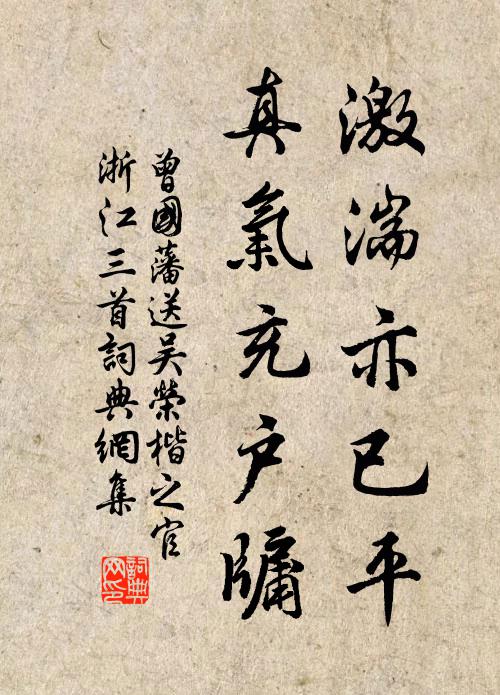 激湍亦已平
真氣充戶牖
曾國藩送吳榮楷之官
浙江三首詞典網集
詞典网印